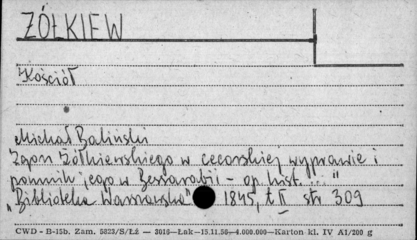 ŻÓŁKIEW
Kościół
Michał Baliński
Zgon Żółkiewskiego w cecorskiej wyprawie i
pomnik jego w Bessarabii - op. hist. ..."
"Biblioteka Warszawska" 1845, t. II str 309
CWD - B-15b. Zam. 5823/S/Łż — 3016—Łak—15.11.56—4.000.000—Karton kl. IV A1/200 g